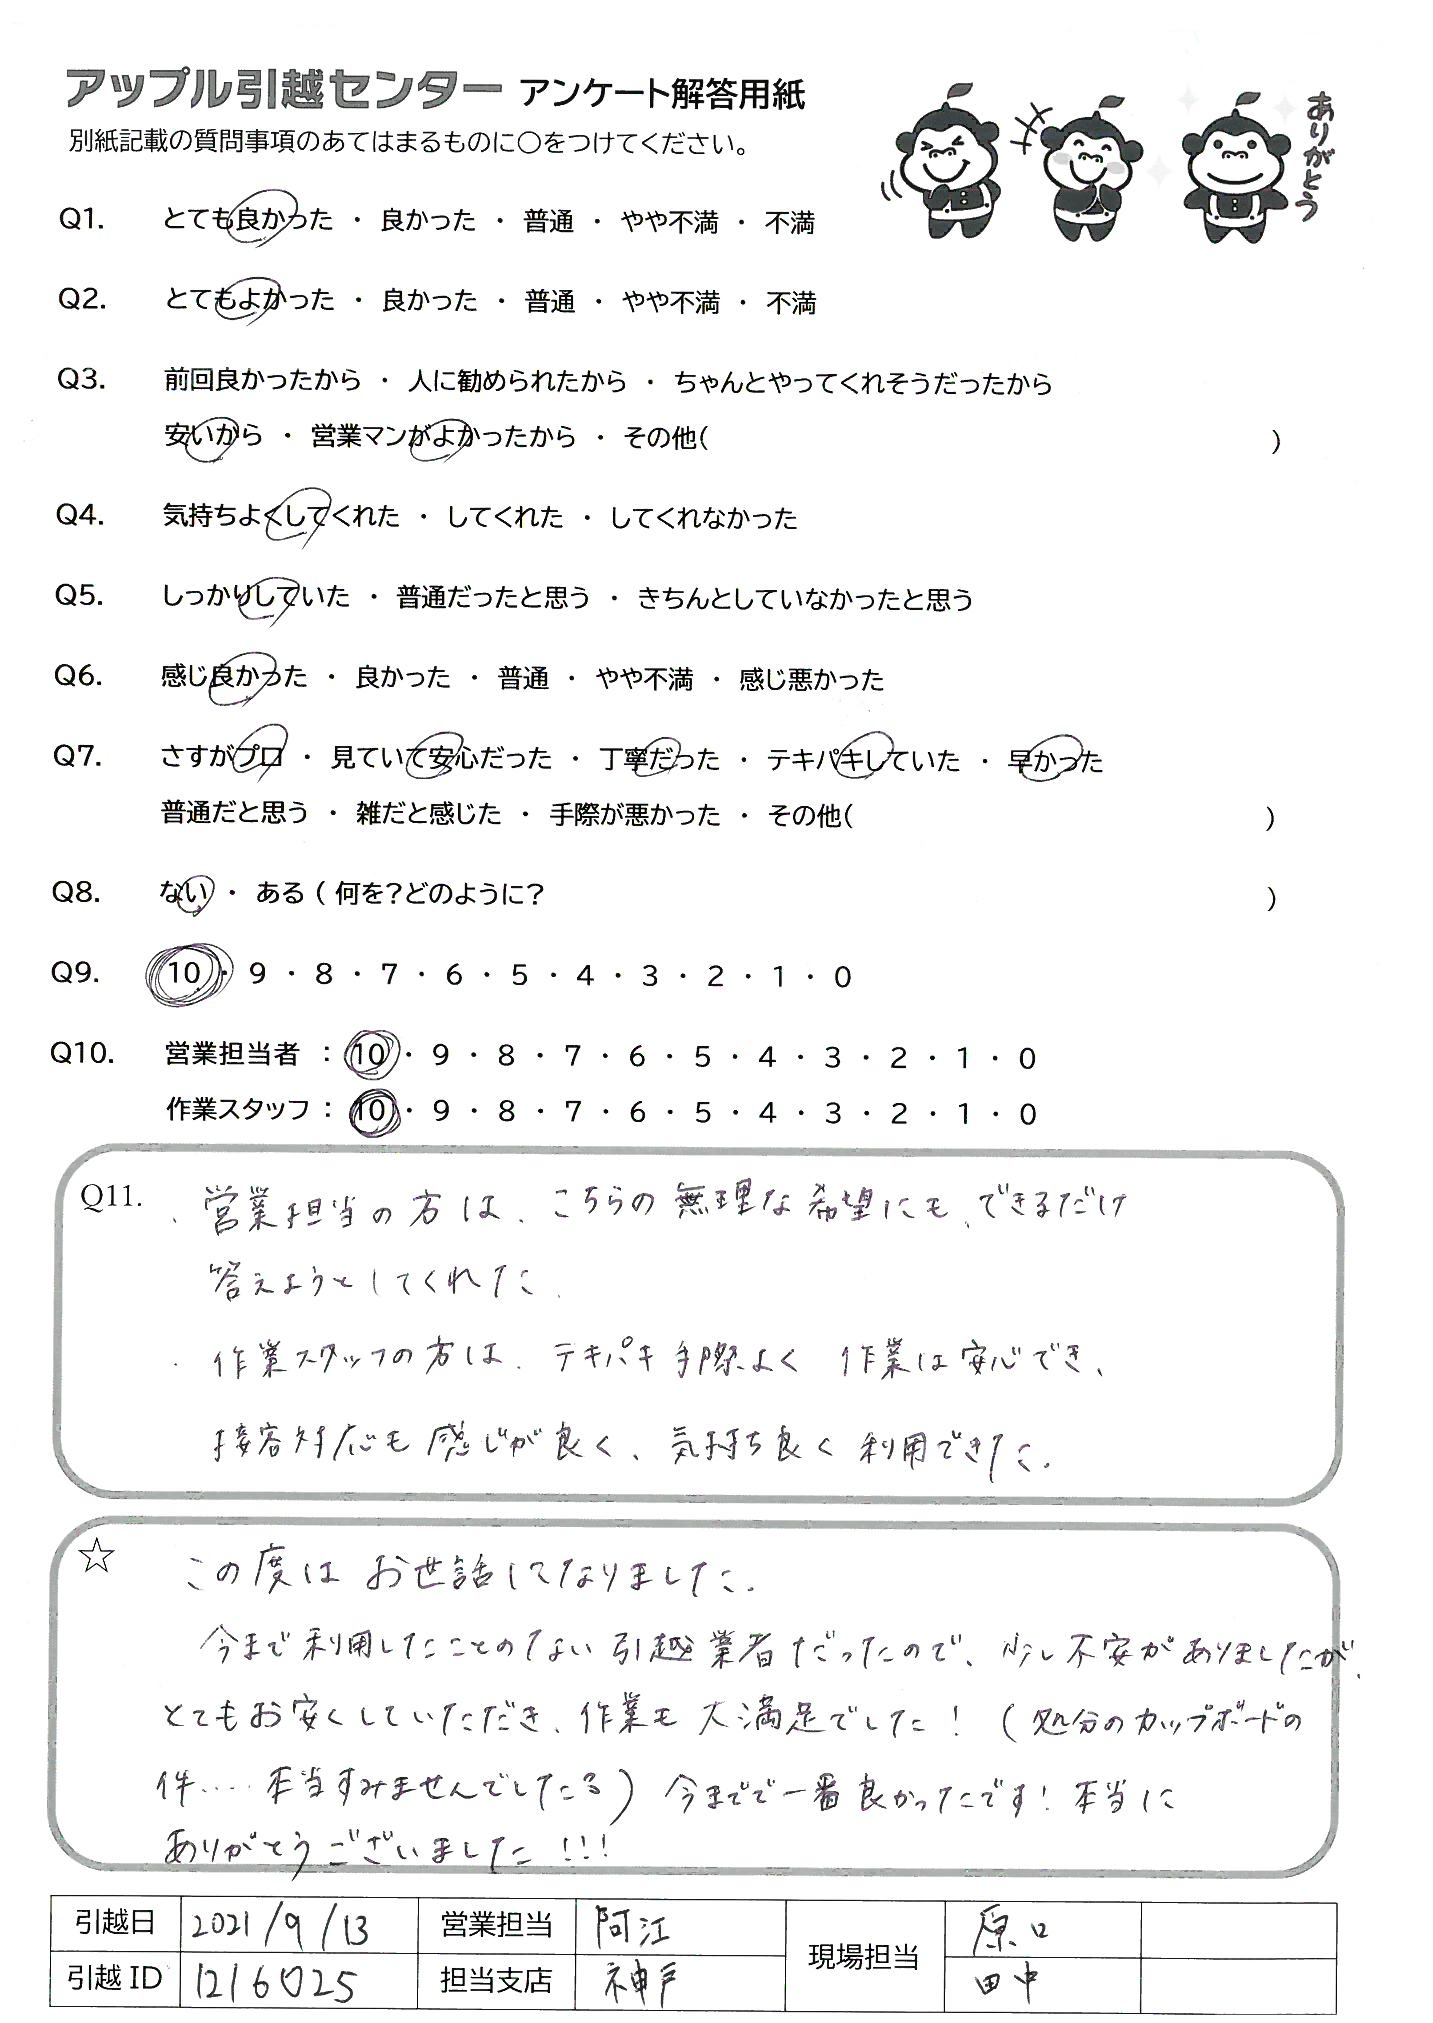 アップル引越センター アンケート解答用紙
別紙記載の質問事項のあてはまるものに○をつけてください。
ありがとう
Q1. とても良かった ・ 良かった ・ 普通 ・ やや不満 ・ 不満
Q2. とてもよかった ・ 良かった ・ 普通 ・ やや不満 ・ 不満
Q3. 前回良かったから ・ 人に勧められたから ・ ちゃんとやってくれそうだったから
安いから ・ 営業マンがよかったから ・ その他( )
Q4. 気持ちよくしてくれた ・ してくれた ・ してくれなかった
Q5. しっかりしていた ・ 普通だったと思う ・ きちんとしていなかったと思う
Q6. 感じ良かった ・ 良かった ・ 普通 ・ やや不満 ・ 感じ悪かった
Q7. さすがプロ ・ 見ていて安心だった ・ 丁寧だった ・ テキパキしていた ・ 早かった
普通だと思う ・ 雑だと感じた ・ 手際が悪かった ・ その他( )
Q8. ない ・ ある ( 何を?どのように? )
Q9. 10 ・ 9 ・ 8 ・ 7 ・ 6 ・ 5 ・ 4 ・ 3 ・ 2 ・ 1 ・ 0
Q10. 営業担当者 : 10 ・ 9 ・ 8 ・ 7 ・ 6 ・ 5 ・ 4 ・ 3 ・ 2 ・ 1 ・ 0
作業スタッフ : 10 ・ 9 ・ 8 ・ 7 ・ 6 ・ 5 ・ 4 ・ 3 ・ 2 ・ 1 ・ 0
Q11. ・営業担当の方は、こちらの無理な希望にも、できるだけ
答えようとしてくれた。
・作業スタッフの方は、テキパキ手際よく 作業は安心でき、
接客対応も感じが良く、気持ち良く利用できた。
☆ この度は お世話になりました。
今まで利用したことのない引越業者だったので、少し不安がありましたが、
とてもお安くしていただき、作業も大満足でした! (処分のカップボードの
件.... 本当すみませんでした💦) 今までで一番良かったです! 本当に
ありがとうございました!!!
引越日 2021/9/13 営業担当 阿江 現場担当 原口
引越ID 1216025 担当支店 神戸 田中